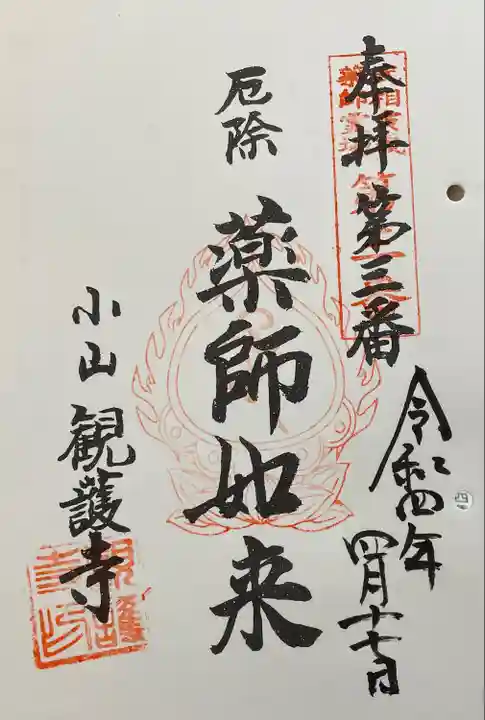 奉拝第三番
令和四年
四月十七日
四
厄除
薬師如来
小山
観護寺